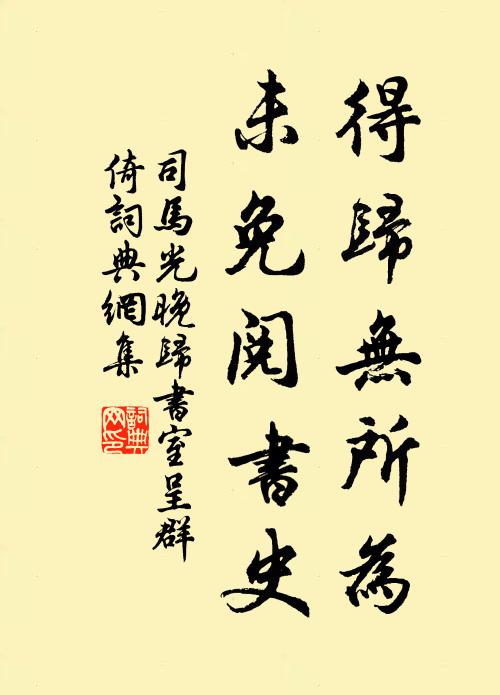 得歸無所為
未免閱書史
司馬光晚歸書室呈群
倚詞典網集
詞典
网印